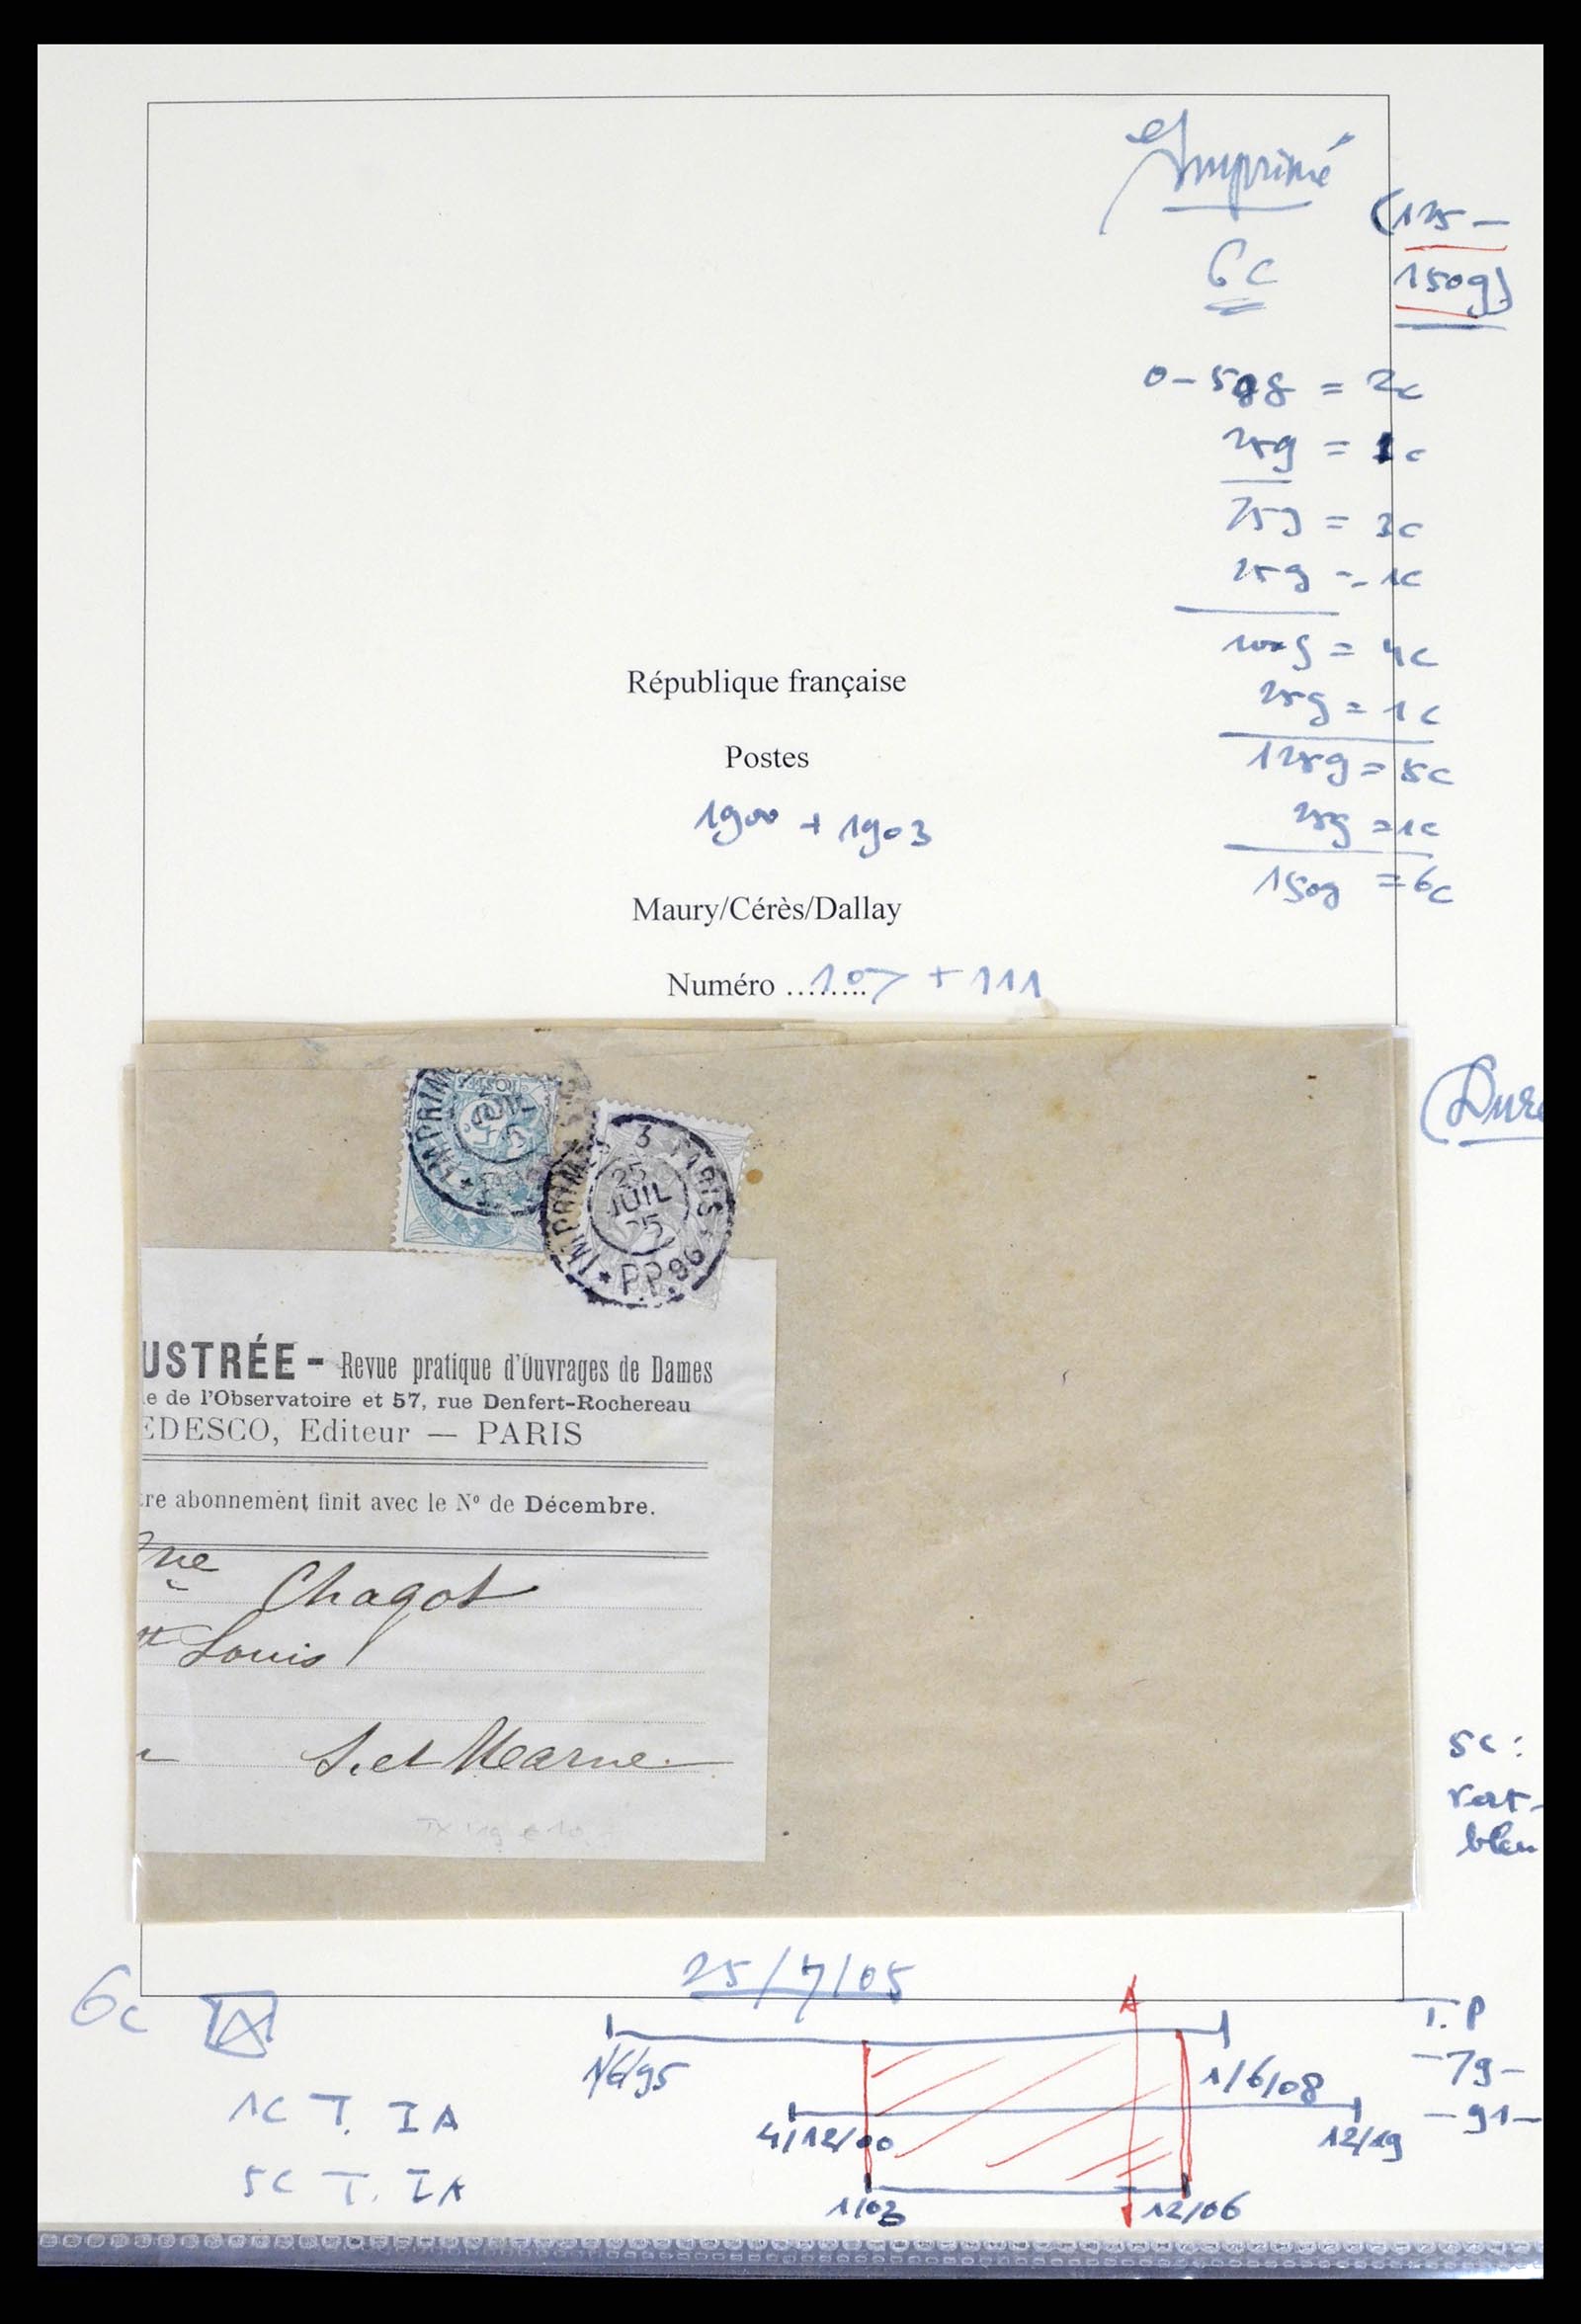 Imprimé
(125 -
150g)
6c
0-50g = 2c
25g = 1c
75g = 3c
25g = 1c
100g = 4c
25g = 1c
125g = 5c
25g = 1c
150g = 6c
République française
Postes
1900 + 1903
Maury/Cérès/Dallay
Numéro ........107 + 111
IMPRIMÉS
3 PARIS
25
JUIL
05
IMPRIMÉS
P.P.96
USTRÉE - Revue pratique d'Ouvrages de Dames
e de l'Observatoire et 57, rue Denfert-Rochereau
EDESCO, Editeur — PARIS
re abonnement finit avec le N° de Décembre.
Chagot
Louis
S. et Marne
5c:
vert-
bleu
25/7/05
6c
T. P
1/6/95
1/6/08
-79-
-91-
1c T. IA
4/12/00
12/19
5c T. IA
1/03
12/06